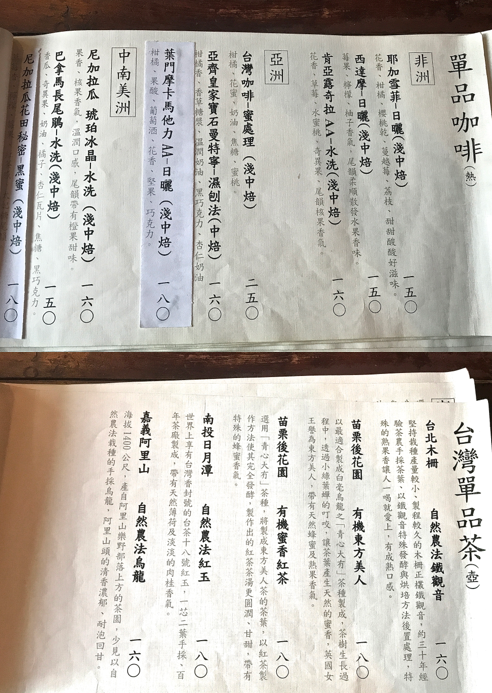 單品咖啡（熱）
非洲
耶加雪菲－日曬（淺中焙） 一五〇
花香、柑橘、櫻桃乾、蔓越莓、荔枝、甜甜酸酸好滋味。
西達摩－日曬（淺中焙） 一五〇
莓果、檸檬、柚子香氣、尾韻柔順散發水果香味。
肯亞露奇拉AA－水洗（淺中焙） 一六〇
花香、草莓、水蜜桃、奇異果、尾韻核果香氣。
亞洲
台灣咖啡－蜜處理（淺中焙） 二五〇
柑橘、花蜜、奶油、焦糖、蜜桃。
亞齊皇家寶石曼特寧－濕刨法（中焙） 一六〇
柑橘香、香草糖漿、溫潤奶油、黑巧克力、杏仁奶油
葉門摩卡馬他力AA－日曬（淺中焙） 一八〇
柑橘、果酸、葡萄酒、花香、堅果、巧克力。
中南美洲
尼加拉瓜 琥珀冰晶－水洗（淺中焙） 一六〇
果香、核果香氣、溫潤口感、尾韻帶有橙果甜味。
巴拿馬長尾鷸－水洗（淺中焙） 一五〇
香瓜、奇異果、奶油、橘子、杏仁瓦片、焦糖、黑巧克力。
尼加拉瓜花田秘密 黑蜜（淺中焙） 一八〇
台灣單品茶（壺）
台北木柵 自然農法鐵觀音 一六〇
堅持栽種產量較小、製程較久的木柵正欉鐵觀音，約三十年經
驗茶農手採茶葉、以鐵觀音特殊發酵與烘培方法後置處理，特
殊的熟果香讓人一喝就愛上，有成熟口感。
苗栗後花園 有機東方美人 一八〇
以最適合製成白毫烏龍之「青心大冇」茶種製成，茶樹生長過
程中，透過小綠葉蟬的叮咬，讓茶葉產生天然的蜜香，英國女
王譽為東方美人，帶有天然蜂蜜及熟果香氣。
苗栗後花園 有機蜜香紅茶 一八〇
選用「青心大冇」茶種，將製成東方美人茶的茶葉，以紅茶製
作方法使其完全發酵，製作出的紅茶茶湯更圓潤、甘甜，帶有
特殊的蜂蜜香氣。
南投日月潭 自然農法紅玉 一八〇
世界上享有台灣香封號的台茶十八號紅玉，一芯二葉手採，百
年茶廠製成，帶有天然薄荷及淡淡的肉桂香氣。
嘉義阿里山 自然農法烏龍 一六〇
海拔1400公尺，產自阿里山樂野部落上方的茶園，少見以自
然農法栽種的手採烏龍，阿里山頭的清香濃郁、耐泡回甘。